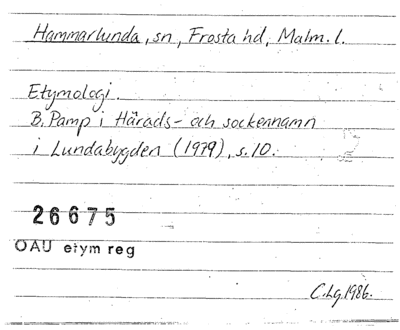 Hammarlunda, sn, Frosta hd, Malm. l.
Etymologi.
B. Pamp i Härads- och sockennamn
i Lundabygden (1979), s. 10.
26675
OAU etym reg
C.Lg. 1986.